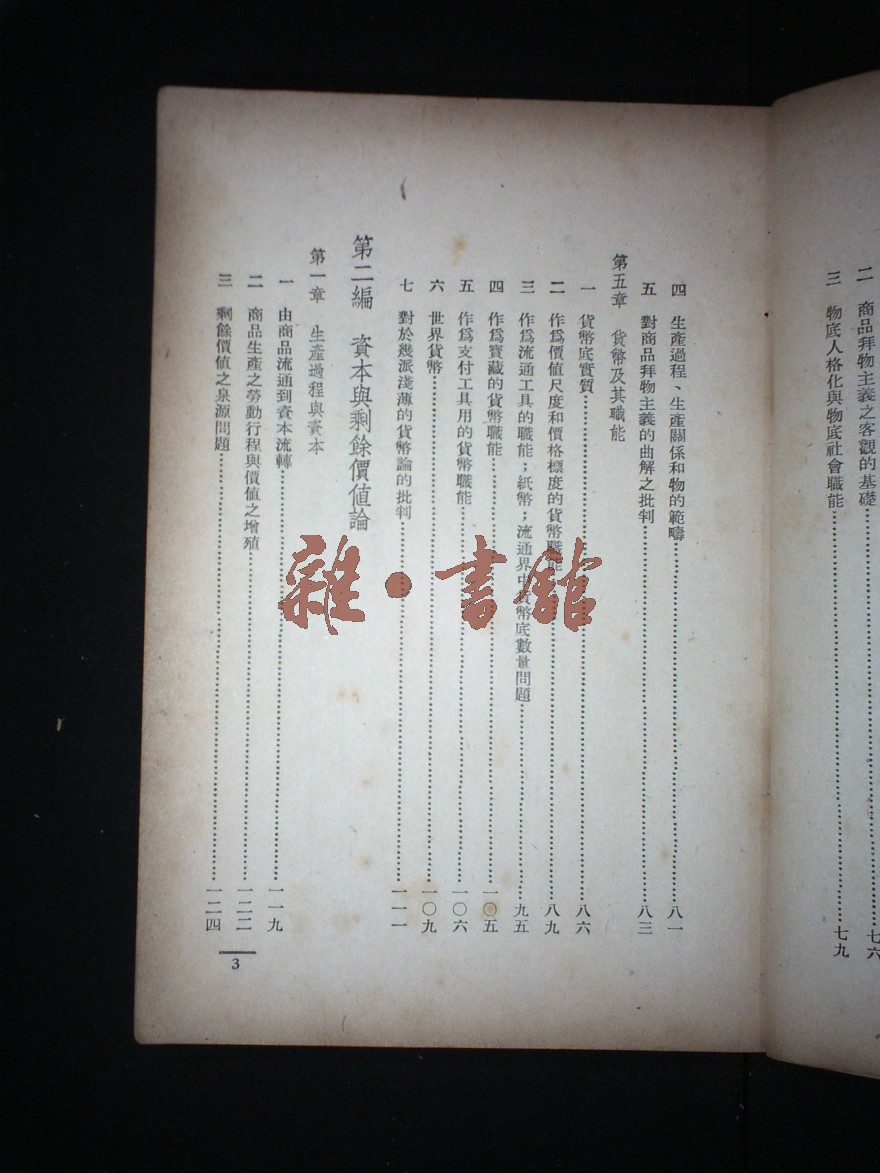 二　商品拜物主義之客觀的基礎……七六
三　物底人格化與物底社會職能……七九
四　生產過程、生產關係和物的範疇……八一
五　對商品拜物主義的曲解之批判……八三
第五章　貨幣及其職能
一　貨幣底實質……八六
二　作爲價値尺度和價格標度的貨幣職能……八九
三　作爲流通工具的職能；紙幣；流通界中貨幣底數量問題……九五
四　作爲寶藏的貨幣職能……一〇五
五　作爲支付工具用的貨幣職能……一〇六
六　世界貨幣……一〇九
七　對於幾派淺薄的貨幣論的批判……一一一
第二編　資本與剩餘價値論
第一章　生產過程與資本
一　由商品流通到資本流轉……一一九
二　商品生產之勞動行程與價値之增殖……一二二
三　剩餘價値之泉源問題……一二四
3
雜·書館